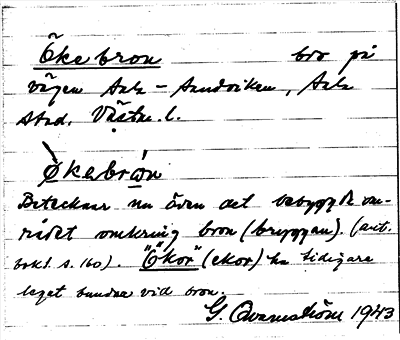 Ökebron bro på
vägen Sala – Sandviken, Sala
stad. Västm. l.
Økebrån
Betecknar nu även det bebyggda om-
rådet omkring bron (bryggan). (avt.
bokf. s. 160). "Ökor" (ekor) ha tidigare
legat bundna vid bron.
G. Qvarnström 1943